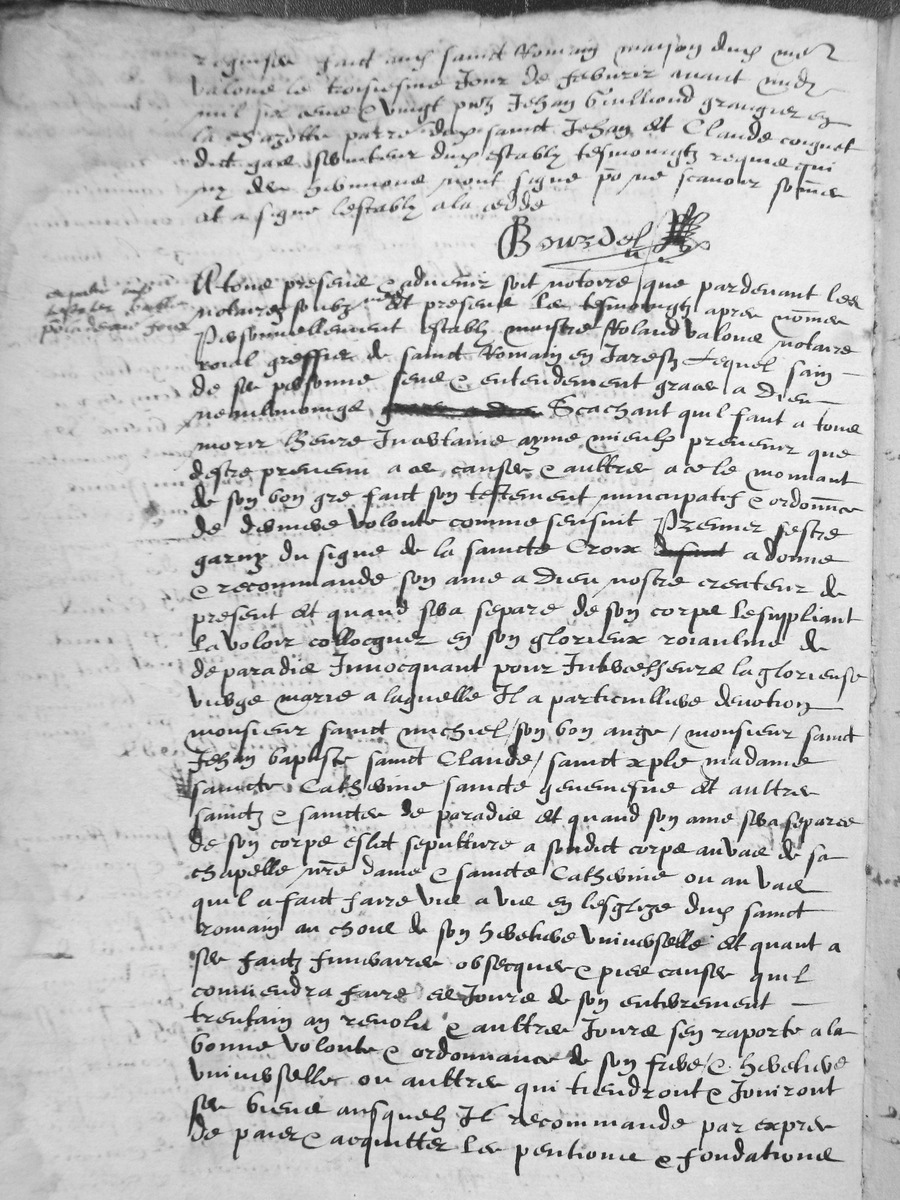 requise faict aud sainct Romain maison dud mre
Valous le troisiesme Jour de febvrir avant midy
mil six cens & vingt pntz Jehan Guilliond grangier en
la parre dud sainct Jehan et Claude coignet
dict gae serviteur dud estably tesmoingtz requis qui
ny des nont signe po ne scavoir so͞me
et a signe lestably a la cedde
Bourdel
A tous presens & advenir soit notoire que pardevant les
notaire soubz et presens les tesmoingtz apres no͞mes
Personnellement estably maistre Roland Valous notaire
roial greffier de sainct Romain en Jarestz Lequel sain
de sa personne sens & entendement graces a Dieu
neaulmoings Scachant quil fault a tous
morir heure Incertaine ayme mieulx prevenir que
destre prevenu a ces causes & aultres a ce le movant
de son bon gre faict son testement nuncupatif & ordo͞nnce
de derniere volonte comme sensuit Premier sestre
garny du signe de la saincte Croix a donne
& recommande son ame a Dieu nostre createur de
present et quand sera separe de son corps Le supliant
La voloir collocquer en son glorieux roiaulme de
de paradis Invocquant pour Intercesseurs la glorieuse
vierge marie a laquelle Il a particulliere devotion
monsieur sainct michiel / son bon ange / monsieur sainct
Jehan baptiste sainct Claude / sainct xple madame
saincte Catherine saincte geneviesve et aultres
sainctz & sainctes de paradis et quand son ame sera separee
de son corps eslit sepulture a sondict corps au vas de sa
chapelle nre dame & saincte Catherine ou au vas
quil a faict faire vis a vis en lesglize dud sainct
romain au chois de son heretiere universelle et quant a
ses faictz funeraires obsecques & pies causes quil
conviendra faire es Jours de son enterrement
trentain an revolu & aultres Jours sen raporte a la
bonne volonte & ordonnance de son frere / & heretiere
universelle ou aultres qui tiendront & Joniront
ses biens ausquelz Il recommande par expres
de paier & acquitter les pentions & fondations